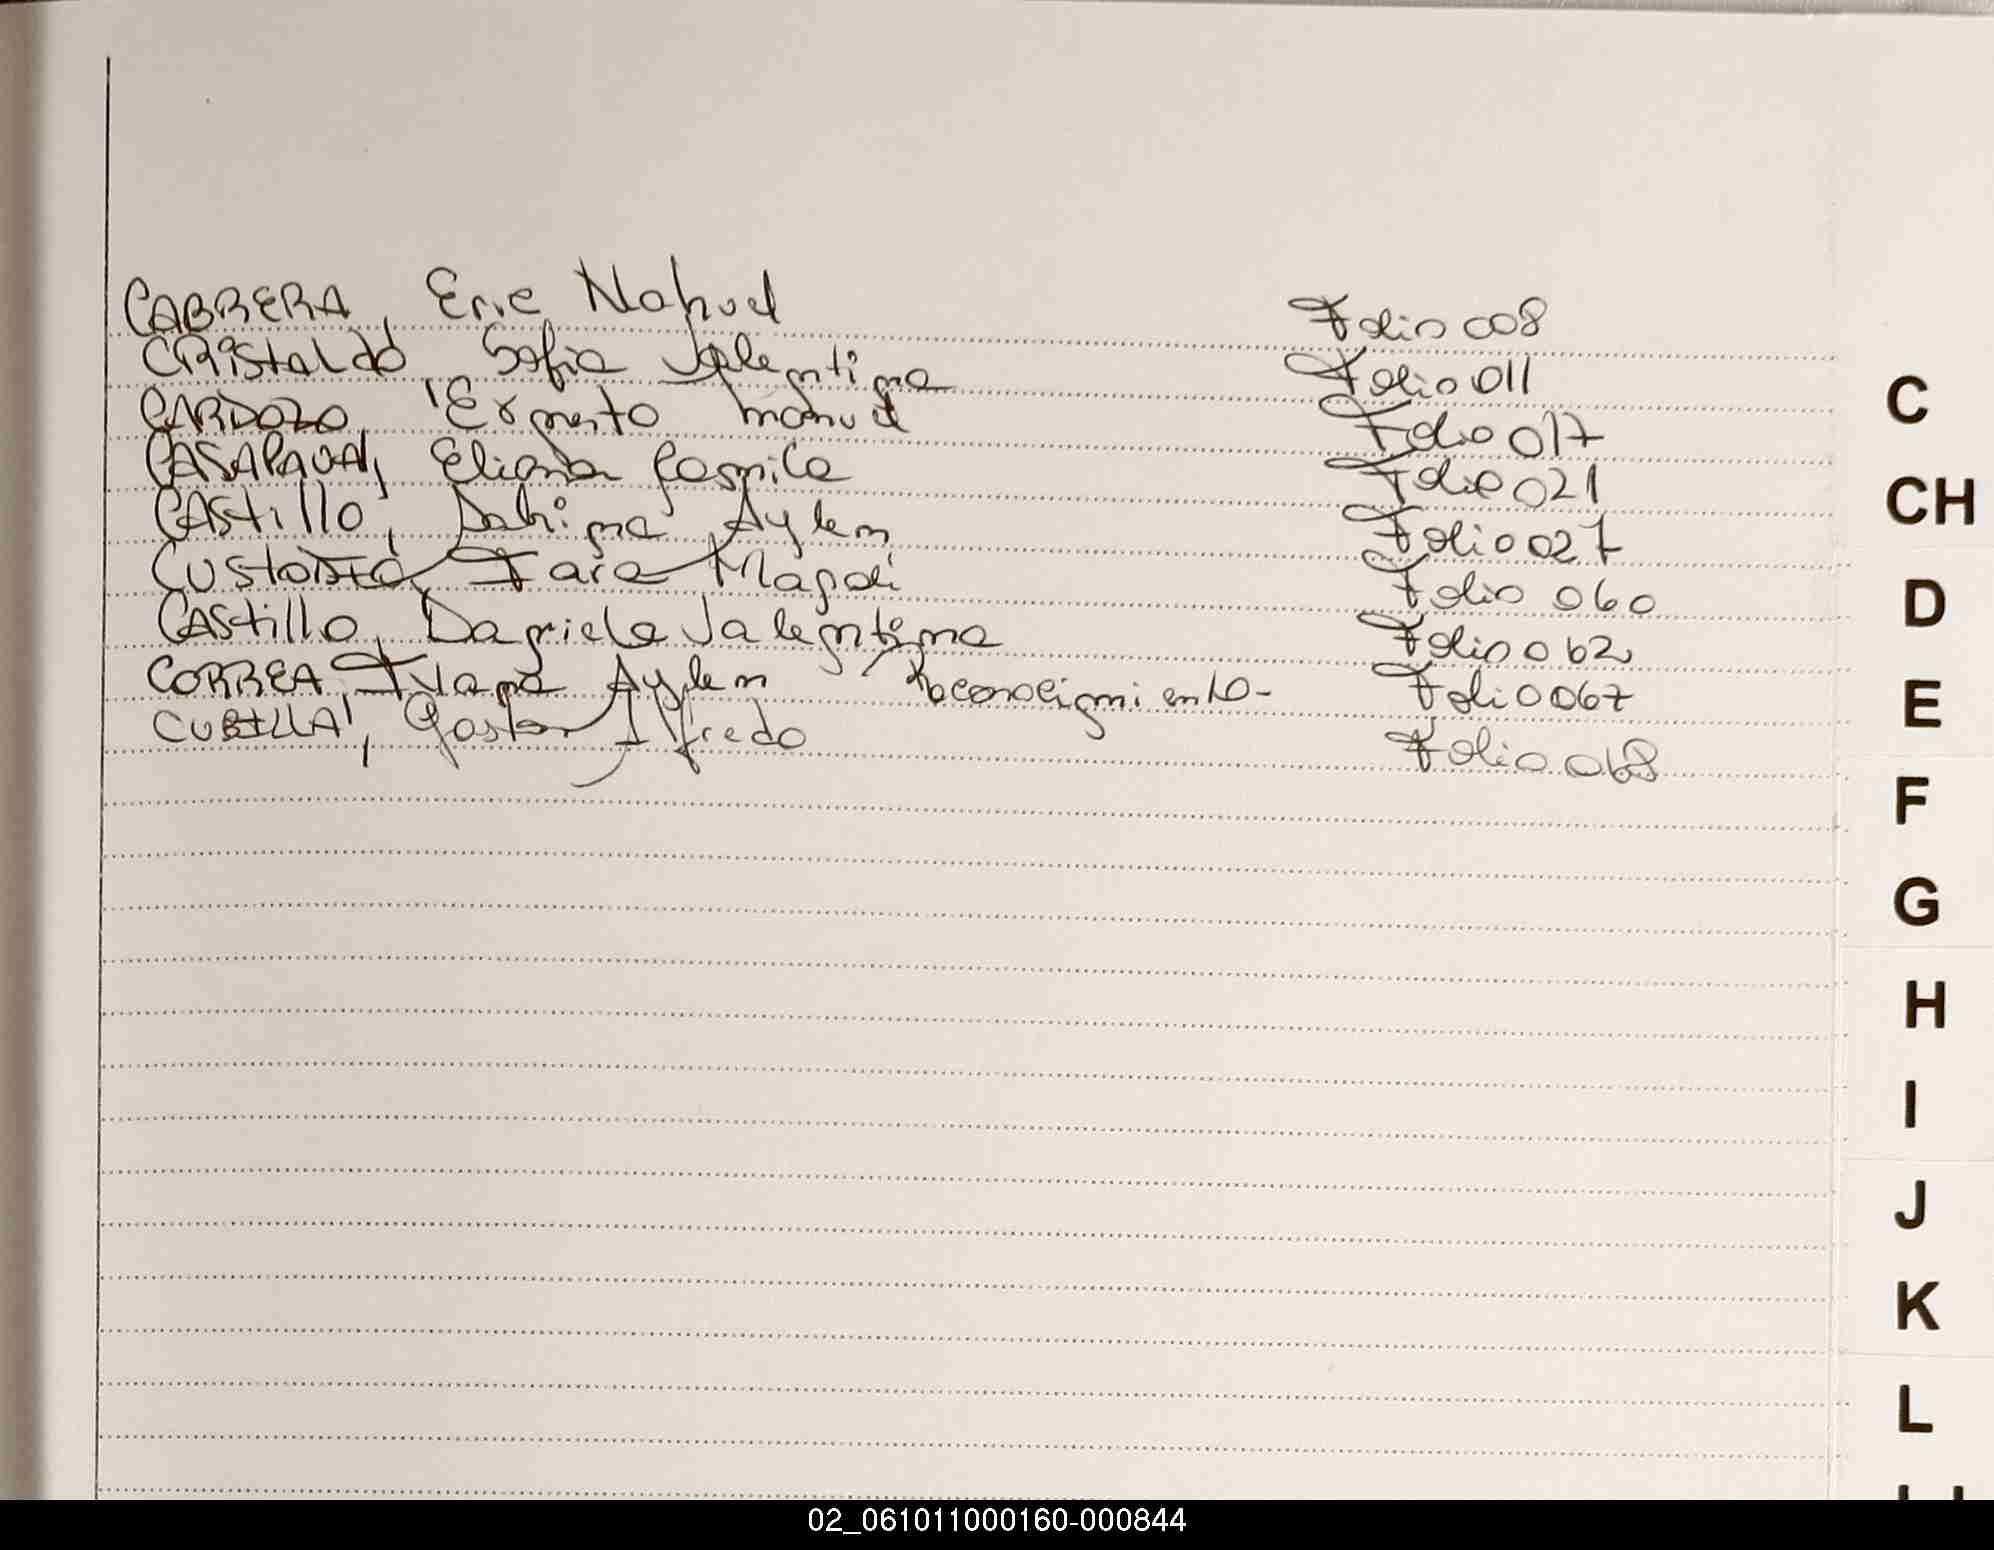 CABRERA, Eric Nahuel Folio 008
CRISTALDO, Sofia Valentina Folio 011
CARDOZO, Ernesto Manuel Folio 017
CASAPAVA, Eliana Camila Folio 021
CASTILLO, Sabrina Aylen Folio 027
Magali Folio 060
CASTILLO, Daniela Valentina Folio 062
CORREA, Ivana Aylen Reconocimiento- Folio 067
CUBILLA, Gaston Alfredo Folio 068
C
CH
D
E
F
G
H
I
J
K
L
02_061011000160-000844